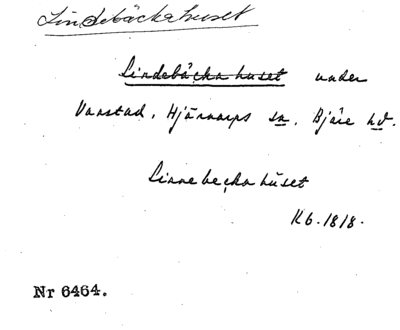 Lindebäckahuset
Lindebäcka huset under
Vanstad, Hjärnarps sn. Bjäre hd.
Linnebecka huset
Kb. 1818.
Nr 6464.